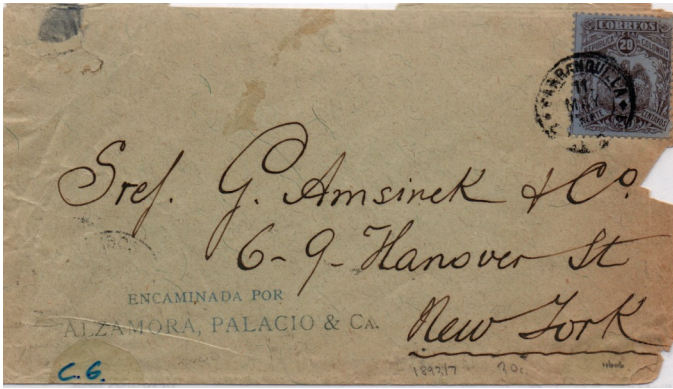 CORREOS
20
BARRANQUILLA
11
MAY
Sres. G. Amsinck & Co.
6-9-Hanover St
New York
ENCAMINADA POR
ALZAMORA, PALACIO & CA.
C.G.
1893/7 20c